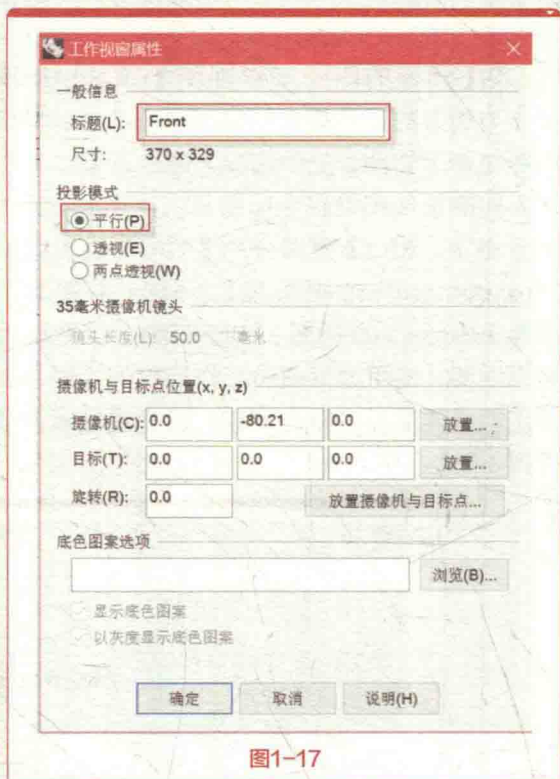 工作视窗属性
一般信息
标题(L): Front
尺寸: 370 x 329
投影模式
平行(P)
透视(E)
两点透视(W)
35毫米摄像机镜头
镜头长度(L): 50.0 毫米
摄像机与目标点位置(x, y, z)
摄像机(C): 0.0 -80.21 0.0 放置...
目标(T): 0.0 0.0 0.0 放置...
旋转(R): 0.0 放置摄像机与目标点...
底色图案选项
浏览(B)...
显示底色图案
以灰度显示底色图案
确定 取消 说明(H)
图1-17